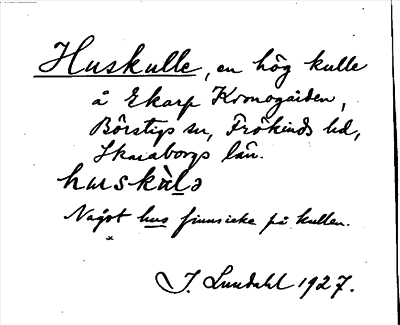 Huskulle, en hög kulle
å Ekarp Kronogården,
Börstigs sn, Frökinds hd,
Skaraborgs län.
huskùlə
Något hus finns icke på kullen.
J. Lundahl 1927.